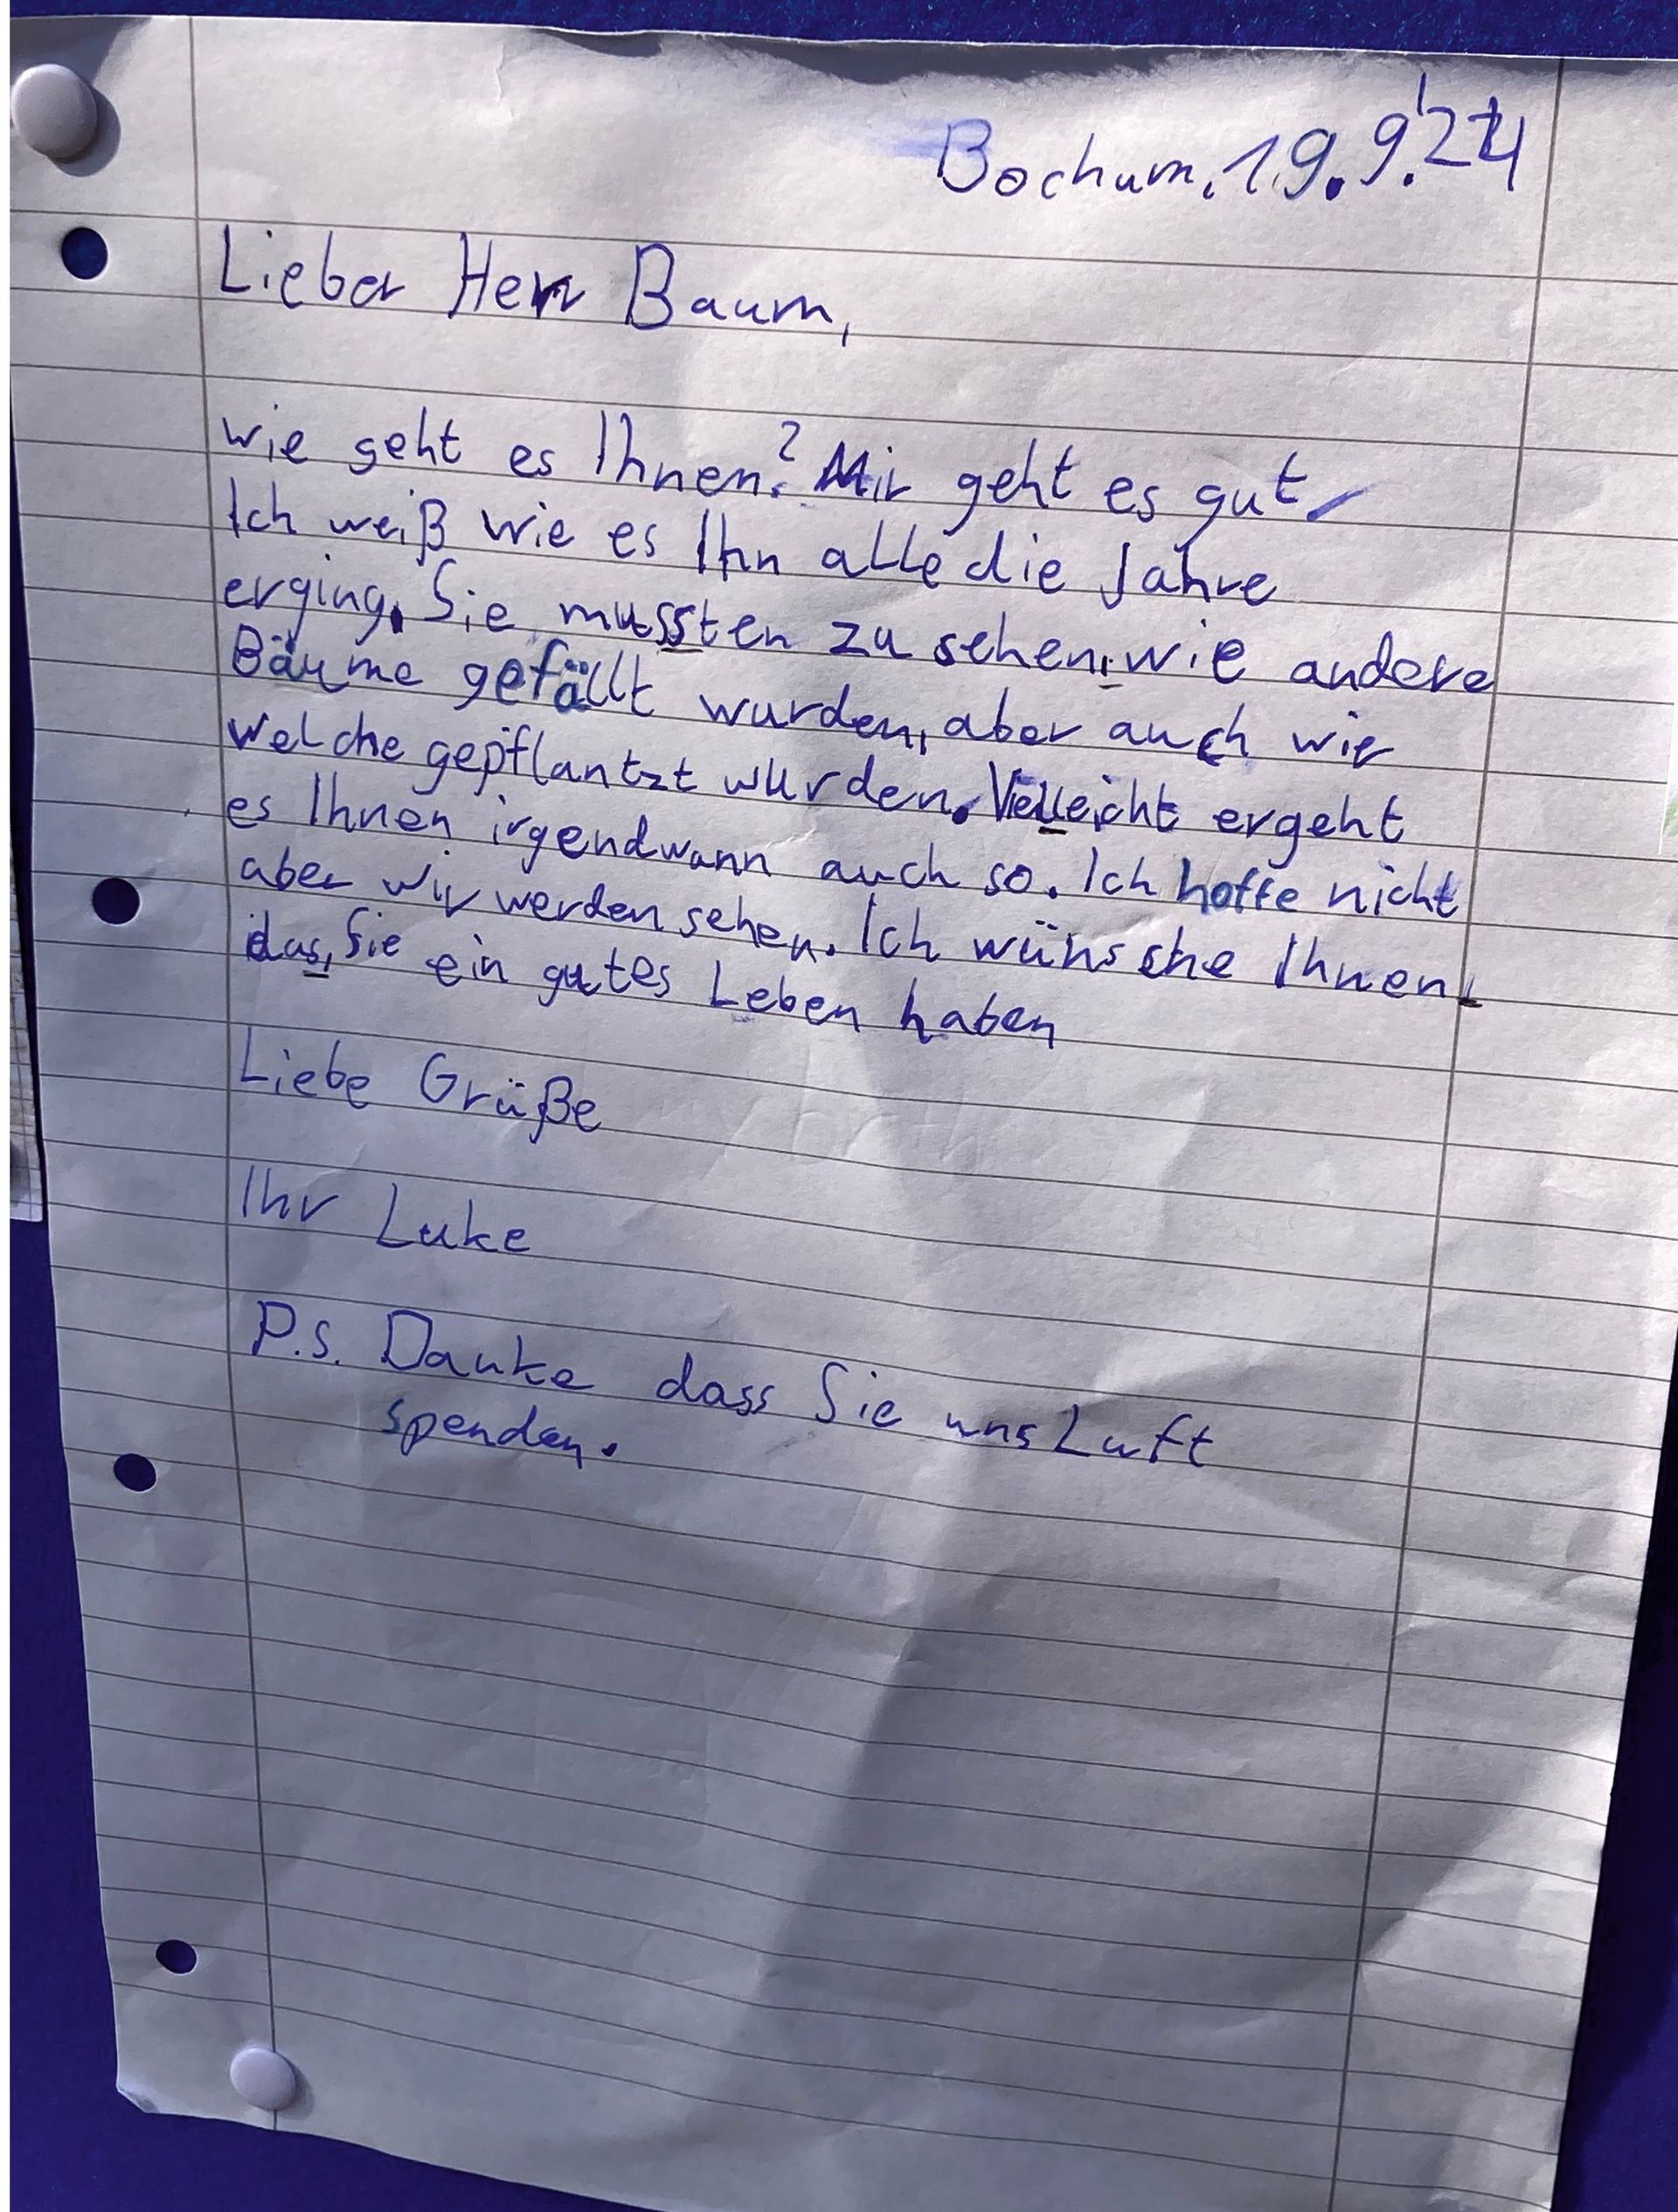 Bochum, 19.9.'24
Lieber Herr Baum,
wie geht es Ihnen? Mir geht es gut
Ich weiß wie es Ihn alle die Jahre
erging. Sie mussten zu sehen, wie andere
Bäume gefällt wurden, aber auch wie
welche gepflantzt wurden. Vielleicht ergeht
es Ihnen irgendwann auch so. Ich hoffe nicht
aber wir werden sehen. Ich wünsche Ihnen,
das, Sie ein gutes Leben haben
Liebe Grüße
Ihr Luke
P.S. Danke dass Sie uns Luft
spenden.